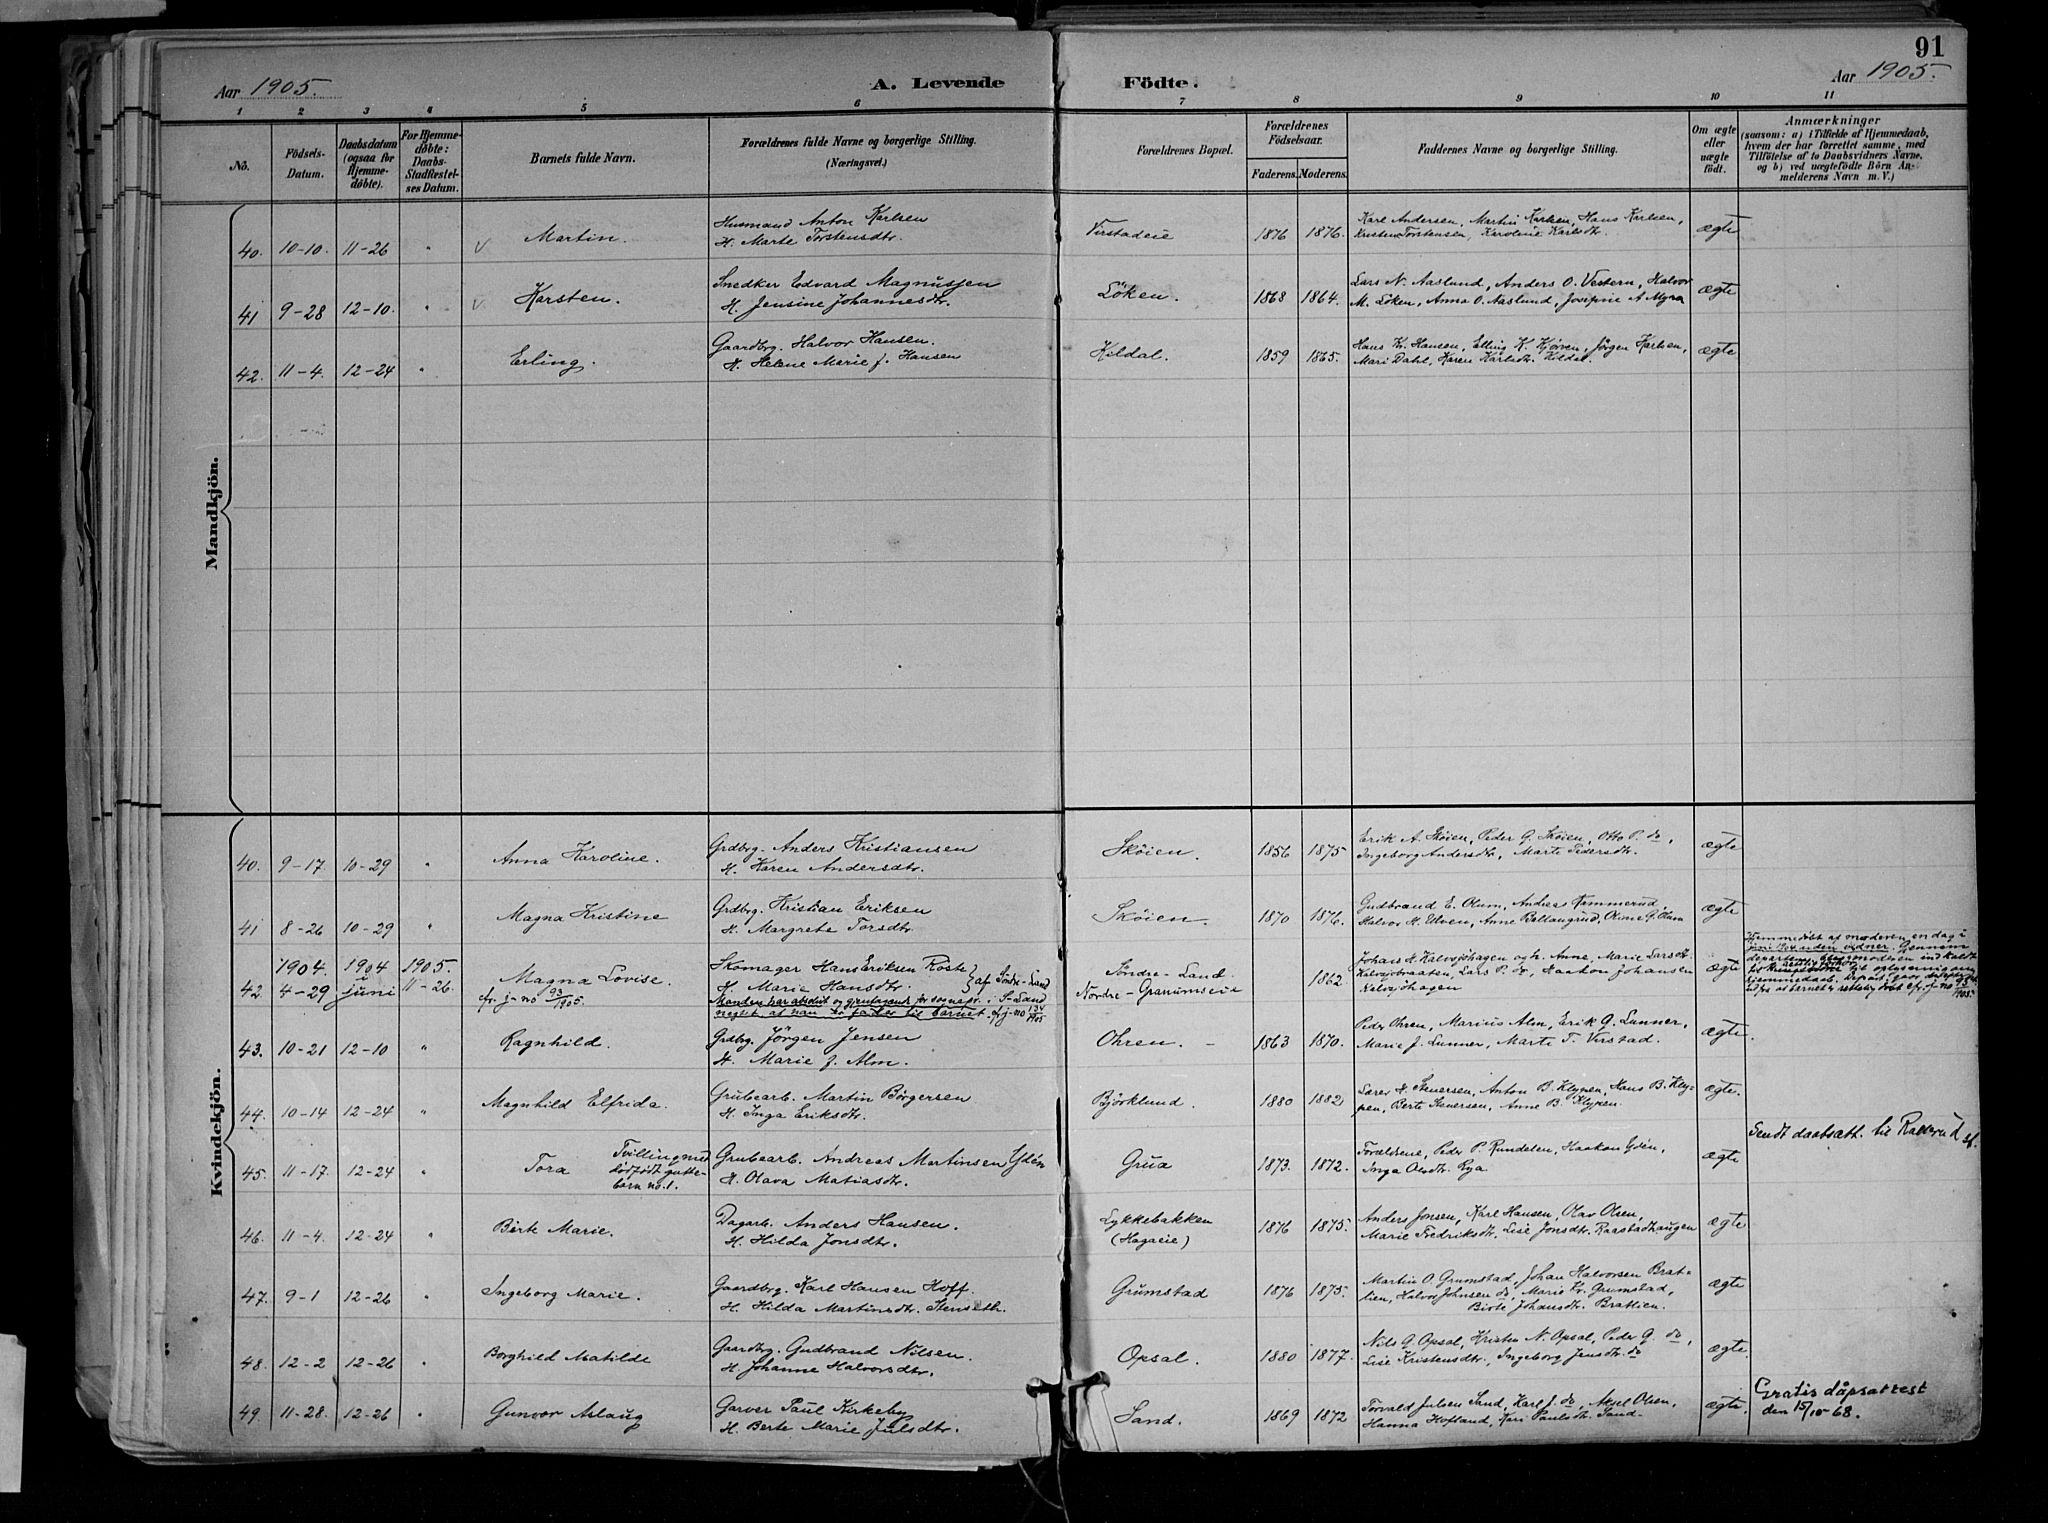 91
Aar 1905.
A. Levende Födte.
Aar 1905.
1 2 3 4 5 6 7 8 9 10 11
Nö.
Födsels-Datum.
Daabsdatum (ogsaa for Hjemmedöbte).
For Hjemmedöbte: Daabs-Stadfæstelses Datum.
Barnets fulde Navn.
Forældrenes fulde Navne og borgerlige Stilling. (Næringsvei.)
Forældrenes Bopæl.
Forældrenes Födselsaar.
Faderens. Moderens.
Faddernes Navne og borgerlige Stilling.
Om ægte eller uægte födt.
Anmærkninger
(saasom: a) i Tilfælde af Hjemmedaab, hvem der har forrettet samme, med Tilföielse af to Daabsvidners Navne, og b) ved uægtefödte Börn Anmelderens Navn m. V.)
Mandkjön.
40. 10-10. 11-26 " v Martin. Husmand Anton Karlsen Virstadeie 1876 1876. Karl Andersen, Martin Karlsen, Hans Karlsen, ægte
H. Marte Torstensdtr. Kristen Torstensen, Karoline Karlsdtr.
41 9-28 12-10. " v. Karsten. Snedker Edvard Magnussen Löken. 1868 1864. Lars N. Aaslund, Anders O. Vestern, Halvor ægte
H. Jensine Johannesdtr. M. Löken, Anna O. Aaslund, Josefine A Myra
42. 11-4. 12-24 " Erling. Gaardbrg. Halvor Hansen. Kildal. 1859 1865. Hans Kr. Hansen, Elling K. Kjörven, Jörgen Karlsen, ægte
H. Helene Marie f. Hansen Mari Dahl, Karen Karlsdtr. Kildal.
Kvindekjön.
40. 9-17. 10-29 " Anna Karoline. Grdbrg. Anders Kristiansen Sköien. 1856 1875 Erik A. Sköien, Peder G. Sköien, Otto P. do, ægte
H. Karen Andersdtr. Ingeborg Andersdtr, Marte Pedersdtr.
41 8-26 10-29 " Magna Kristine Grdbrg. Kristian Eriksen Sköien. 1870 1876. Gudbrand E. Olum, Andreas Rammerud, ægte
H. Margrete Torsdtr. Halvor H. Elven, Anne Ballangrud, Oline G. Olum
1904. 1904 1905.
42 4-29 juni 11-26. Magna Lovise. Skomager Hans Eriksen Röste } af Söndre-Land Söndre-Land. 1862. Johans H. Halvsjöhagen og h. Anne, Marie Larsdtr. ægte
cfr. j-no 93/1905. H. Marie Hansdtr. Nordre-Granumseie Halvsjöbraaten, Lars P. do, Haakon Johansen
Halvsjöhagen
Manden har absolut og gjentagende for sognepr. i S-Land
negtet, at han er fader til barnet. cfr j-no
Hjemmedöbt af moderen en dag i
juni 1904 uden vidner. Gjennem
43. 10-21 12-10 " Ragnhild. Grdbg. Jörgen Jensen Ohren. - 1863 1870. Peder Ohren, Marius Alm, Erik G. Lunner, ægte.
H. Marie f. Alm. Marie J. Lunner, Marte T. Virstad.
44. 10-14 12-24 " Magnhild Elfrida. Grubearb. Martin Börgersen Björklund. 1880 1882 H. Stenersen, Anton B. Klypen, Hans B. Kly- ægte.
H. Inga Eriksdtr. pen, Berte Stenersen, Anne B. Klypen.
45. 11-17. 12-24 " Tora Tvilling med dödfödt guttebarn no. 1. Grubearb. Andreas Martinsen Ydén Grua 1873. 1872. Forældrene, Peder P. Rundelen, Haakon Ydén, ægte Sendt daabsatt. til
H. Olava Matiasdtr. Inga Olsdtr. Rya
46. 11-4. 12-24 " Birte Marie. Dagarb. Anders Hansen. Lykkebakken 1876 1875. Anders Jonsen, Karl Hansen, Olav Olsen, ægte
H. Hilda Jonsdtr. (Hagaeie) Marie Fredriksdtr. Lise Jonsdtr. Raastadhaugen
47. 9-1 12-26 " Ingeborg Marie. Gaardbg. Karl Hansen Hoff. Grumstad 1876 1875. Martin O. Grumstad, Johan Halvorsen Brat- ægte
H. Hilda Martinsdtr. Stenseth. lien, Halvor Johnsen do, Marie Kr. Grumstad,
Birte Johansdtr. Brattlien.
48. 12-2 12-26 " Borghild Matilde Gaardbg. Gudbrand Nilsen. Opsal. 1880 1877. Nils G. Opsal, Kristen N. Opsal, Peder G. do, ægte.
H. Johanne Halvorsdtr. Lise Kristensdtr., Ingeborg Jensdtr. do
49. 11-28. 12-26 " Gunvor Aslaug Garver Paul Kirkeby Sand. 1869 1872 Torvald Julsen Sand, Karl J. do, Axel Olsen, ægte. Gratis dåpsattest
H. Berte Marie Julsdtr. Hanna Hofland, Kari Paulsdtr. Sand. den 15/10-68.